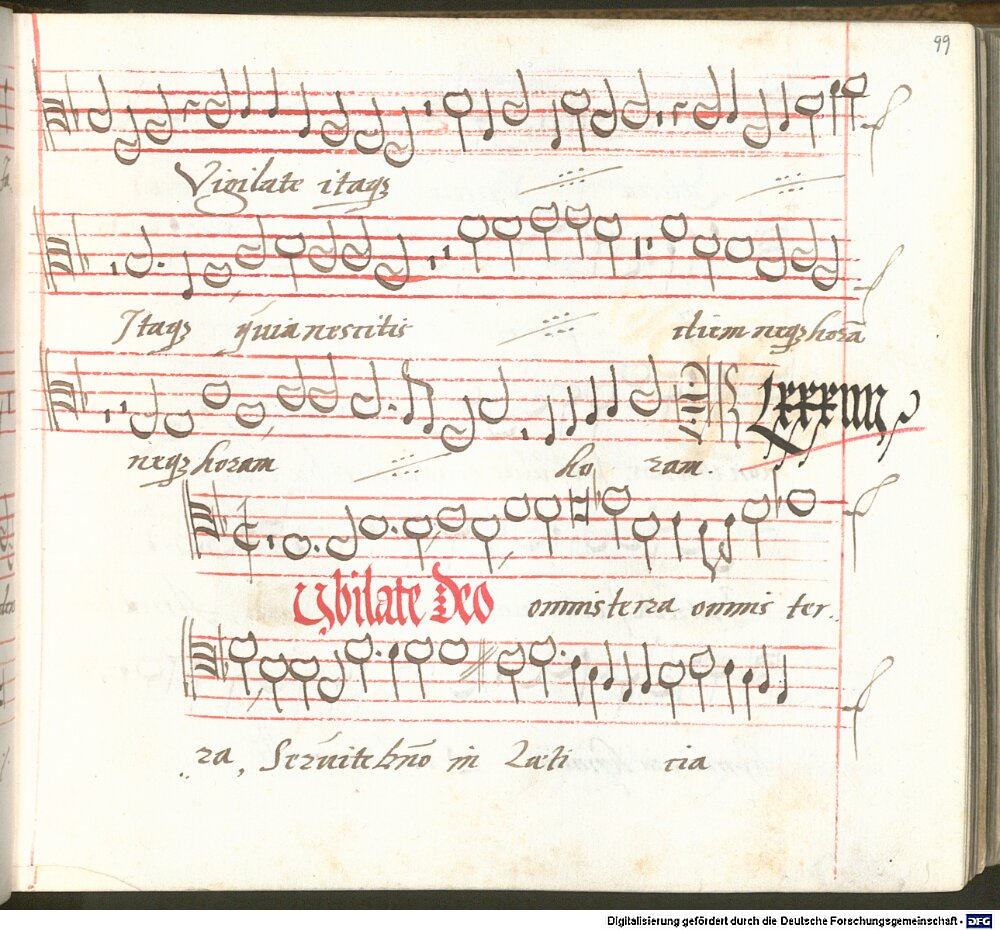 99
Vigilate itaqꝫ
Itaqꝫ quia nescitis diem neqꝫ horā
neqꝫ horam ho ram.
LXXXIIII
Jubilate Deo omnis terra omnis ter..
..ra, Seruite dn̄o in Læti cia
Digitalisierung gefördert durch die Deutsche Forschungsgemeinschaft - DFG